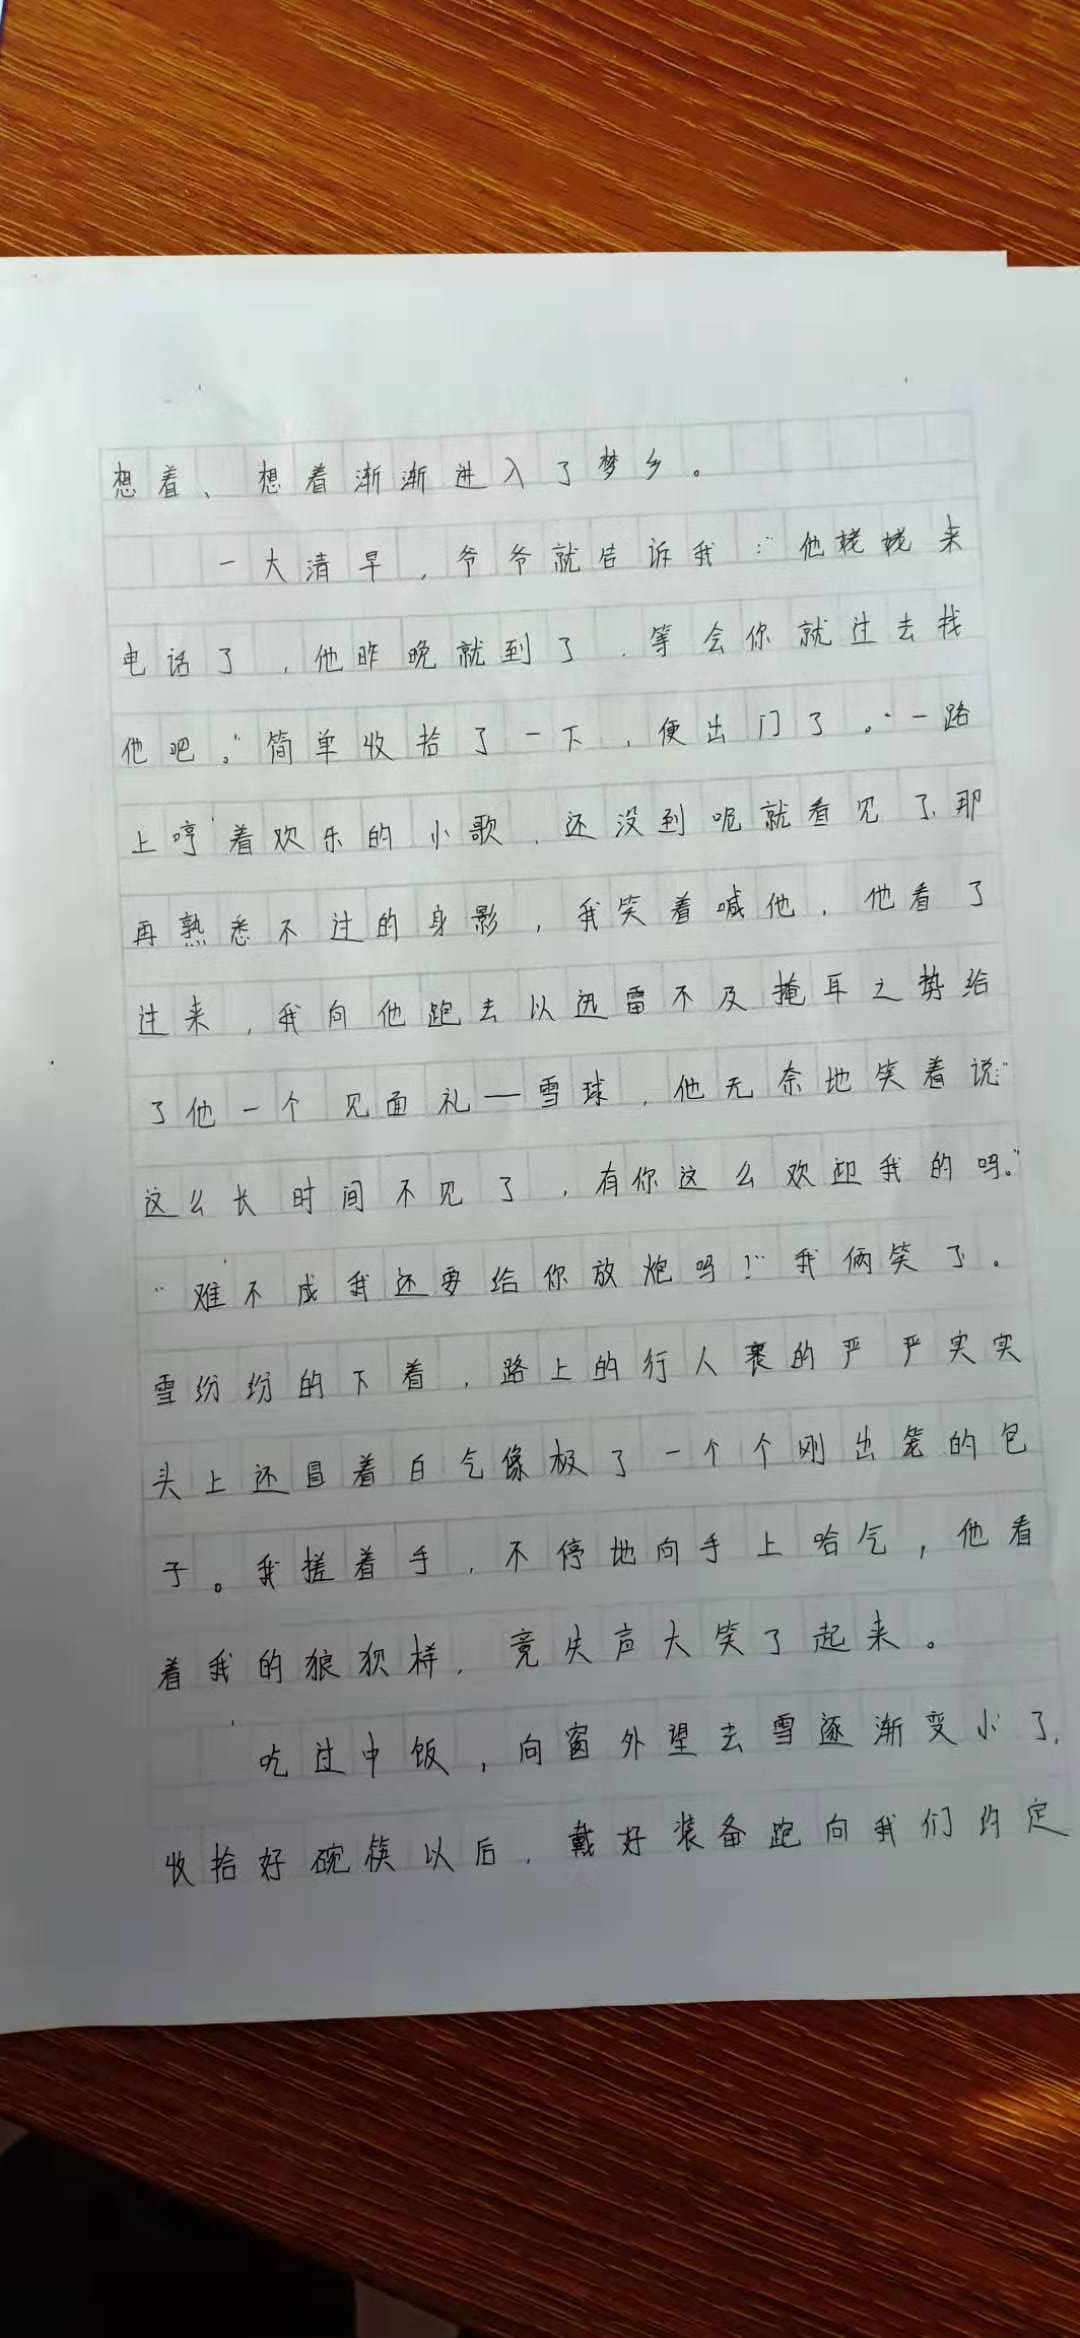 想着、想着渐渐进入了梦乡。
一大清早，爷爷就告诉我：“他姥姥来
电话了，他昨晚就到了，等会你就过去找
他吧。”简单收拾了一下，便出门了。一路
上哼着欢乐的小歌，还没到呢就看见了那
再熟悉不过的身影，我笑着喊他，他看了
过来，我向他跑去以迅雷不及掩耳之势给
了他一个见面礼—雪球，他无奈地笑着说：“
这么长时间不见了，有你这么欢迎我的吗。”
“难不成我还要给你放炮吗！”我俩笑了。
雪纷纷的下着，路上的行人裹的严严实实
头上还冒着白气像极了一个个刚出笼的包
子。我搓着手，不停地向手上哈气，他看
着我的狼狈样，竟失声大笑了起来。
吃过中饭，向窗外望去雪逐渐变小了，
收拾好碗筷以后，戴好装备跑向我们约定